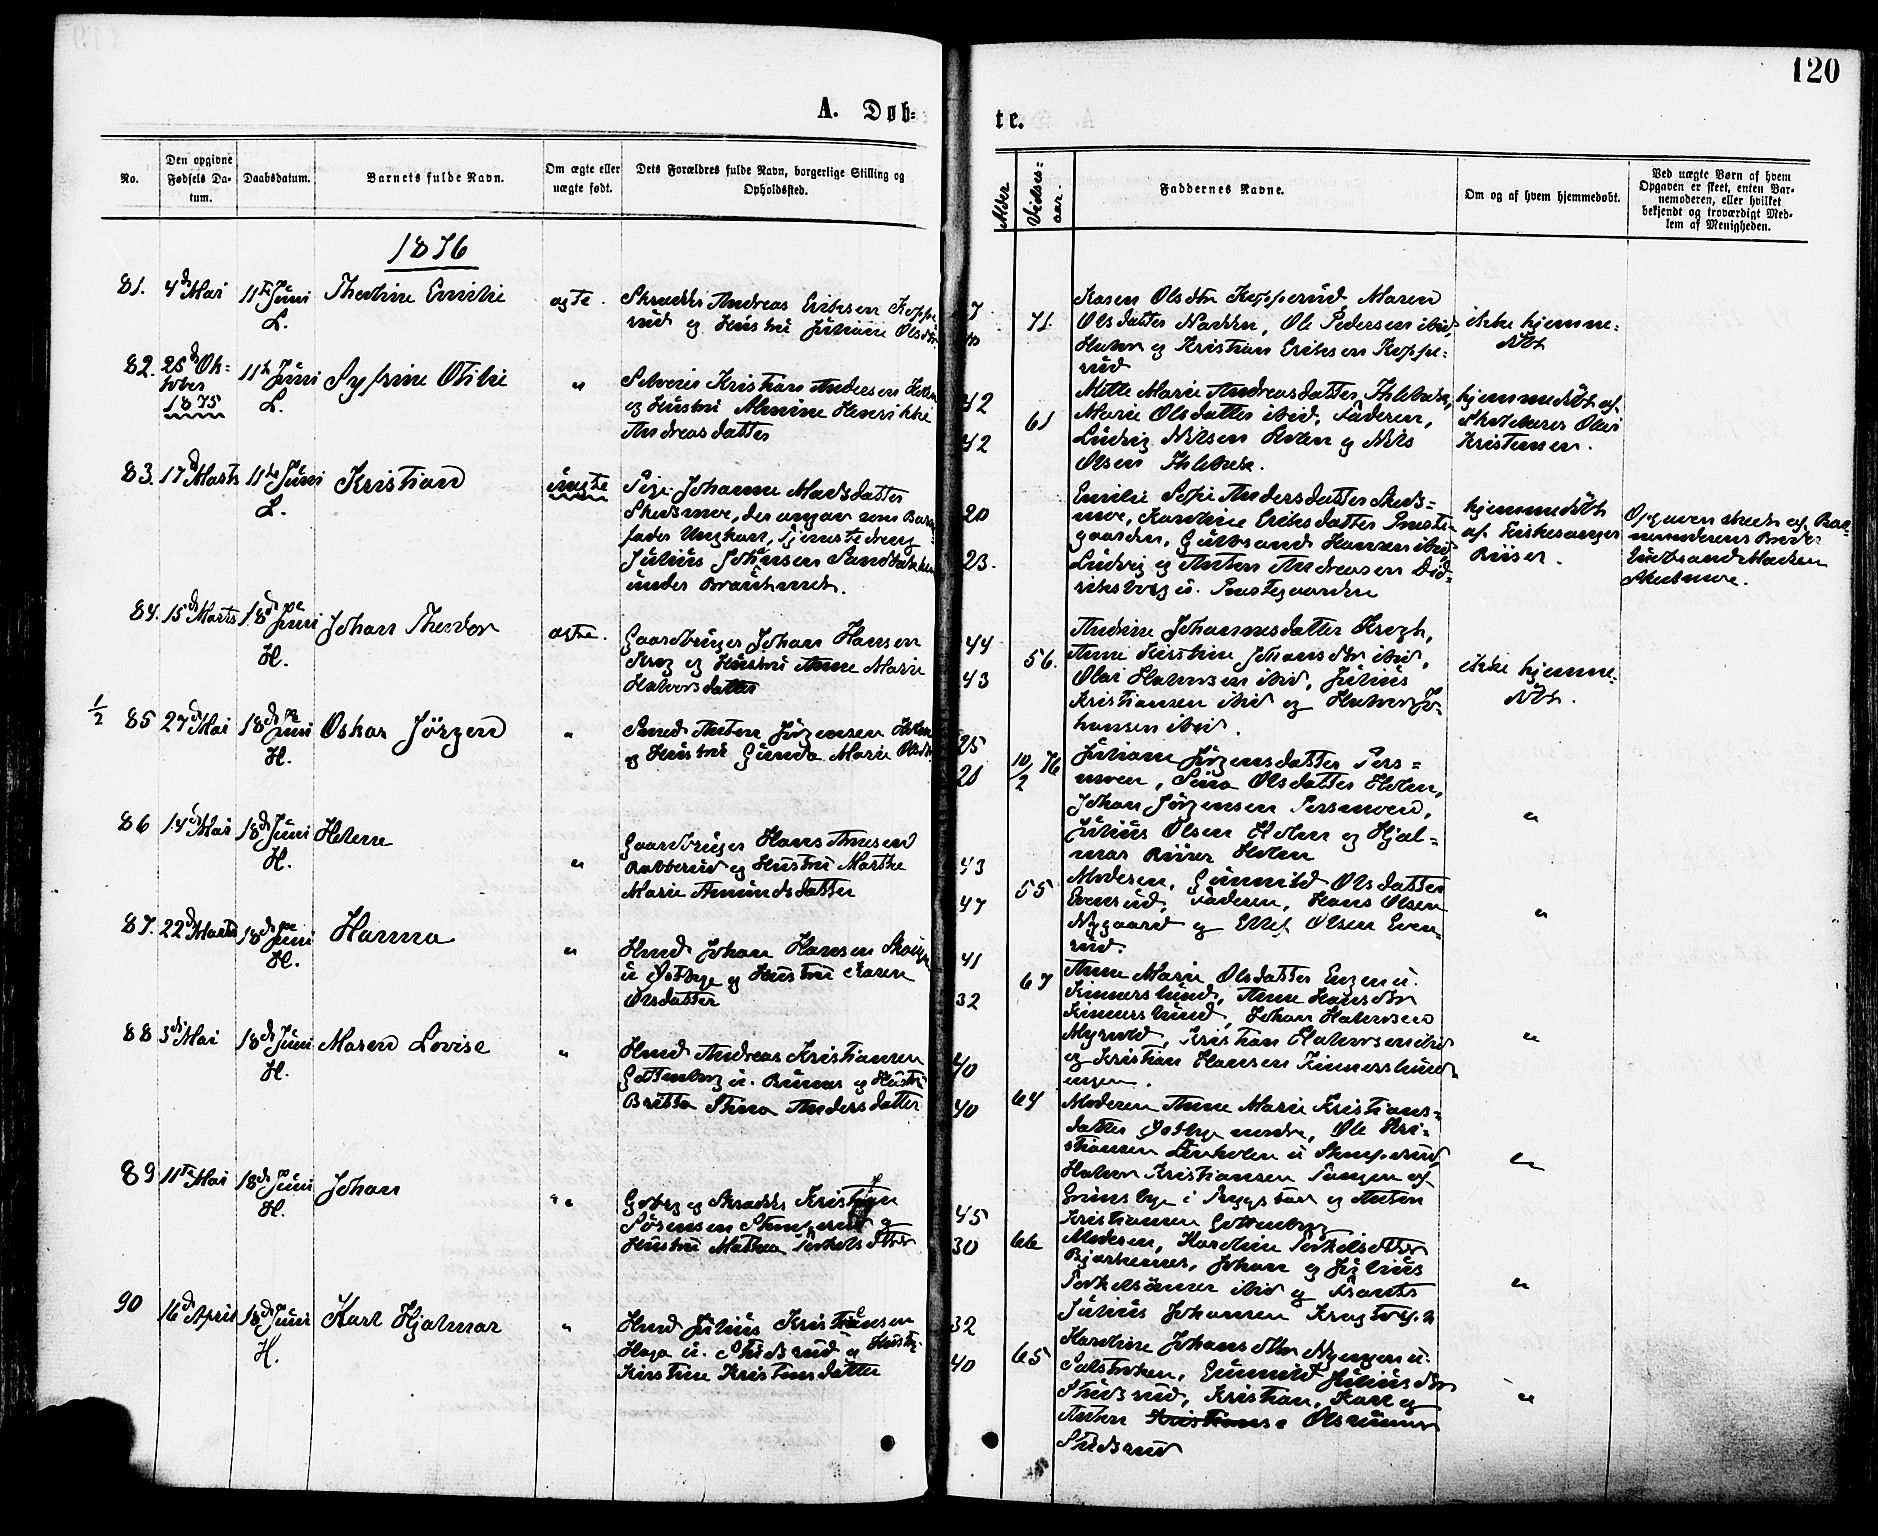 120
A. Døb-
te.
No.
Den opgivne
Fødsels Da-
tum.
Daabsdatum.
Barnets fulde Navn.
Om ægte eller
uægte født.
Dets Forældres fulde Navn, borgerlige Stilling og
Opholdssted.
Alder
Vielses-
aar.
Faddernes Navne.
Om og af hvem hjemmedøbt.
Ved uægte Børn af hvem
Opgaven er skeet, enten Bar-
nemoderen, eller hvilket
bekjendt og troværdigt Med-
lem af Menigheden.
1876
81. 4de Mai
11te Juni
L.
Thorine Emilie
ægte.
Skrædder Andreas Eriksen Koppe-
rud og Hustru Juliane Olsdtr
71.
Karen Olsdtr Kopperud, Maren
Olsdatter Nadden, Ole Pedersen ibid,
Halvor og Kristian Eriksen Koppe-
rud
ikke hjemme-
døbt
82. 25de Ok-
tober
1875
11te Juni
L.
Otilie
"
Selveier Kristian Andersen
og Hustru Henrikke
Andreasdatter
42
42
61
Mette Marie Andreasdatter
Marie Olsdatter ibid, Faderen,
Ludvig Nilsen og Nils
Olsen
hjemmedøbt af
Skolelærer Olaus
Kristensen.
83. 17de Marts
11te Juni
L.
Kristian
uægte
Pige Johanne Madsdatter
Skedsmoe, der angav som Barne-
fader Ungkarl, Tjenestedreng
Julius Johansen Sandbakken
under
20
23.
Emilie Sofie Andersdatter Skeds-
moe, Karoline Eriksdatter Præste-
gaarden, Gulbrand Hansen ibid,
Ludvig og Anton Andreasen Did-
riksborg u. Præstegaarden
hjemmedøbt
af Kirkesanger
Riiser.
Opgaven skeet af Bar-
nemoderens Broder
Gulbrand Madsen
Skedsmoe.
84. 15de Marts
18de Juni
H.
Johan Theodor
ægte.
Gaardbruger Johan Hansen
Krog og Hustru Anne Marie
Halvorsdatter
44
43
56.
Andrine Johannesdatter Krogh,
Anne Kirstine Johansdtr ibid,
Olai Halvorsen ibid, Julius
Kristiansen ibid og Halvor Jo-
hansen ibid.
ikke hjemme-
døbt.
1/2
85 27de Mai
18de Juni
H.
Oskar Jørgen
"
Smed Anton Jørgensen Holen
og Hustru Gunda Marie Olsdtr
25
21
10/2 76
Juliane Jørgensdatter Pers-
moen, Sina Olsdatter Holen,
Johan Jørgensen Persmoen,
Julius Olsen Holen og Hjal-
mar Riiser Holen
"
86 14de Mai
18de Juni
H.
Helene
"
Gaardbruger Hans Amesen
Rabberud og Hustru Marthe
Marie Amundsdatter
43
47
55
Moderen, Gunnild Olsdatter
Evensrud, Faderen, Hans Olsen
Nygaard og Ellef Olsen Even-
rud.
"
87. 22de Marts
18de Juni
H.
Hanna
"
Hmd Johan Hansen
u. Østbye og Hustru Karen
Olsdatter
41
32
67
Anne Marie Olsdatter Engen u.
Kinnerslund, Anne Hansdtr
Kinnerslund, Johan Halvorsen
Myrvold, Kristian Halvorsen ibid
og Kristian Hansen Kinnerslund-
engen.
"
88 3die Mai
18de Juni
H.
Maren Lovise
"
Hmd Andreas Kristiansen
Gottenborg u. og Hustru
Britta Stina Andersdatter
40
40
64
Moderen Anne Marie Kristians-
datter Østbye nordre, Ole Kri-
stiansen u.
Halvor Kristiansen Tangen af
i og Anton
Kristiansen Gottenborg
"
89 11te Mai
18de Juni
H.
Johan
"
og Skrædder Kristian
Sørensen og
Hustru Mathea Torkelsdtter
45
30
66
Moderen, Karoline Torkelsdtter
Johan og Julius
Torkelsønner ibid og Frants
Julius Johansen
"
90
16de April
18de Juni
H.
Karl Hjalmar
"
Hmd Julius Kristiansen
Haga u. Studsrud og Hustru
Kirstine Kristensdatter
32
40
65
Karoline Johansdtter Nyengen u.
Gunnild Juliusdtr
Studsrud, Kristian, Karl og
Anton Olsønner
Studsrud
"